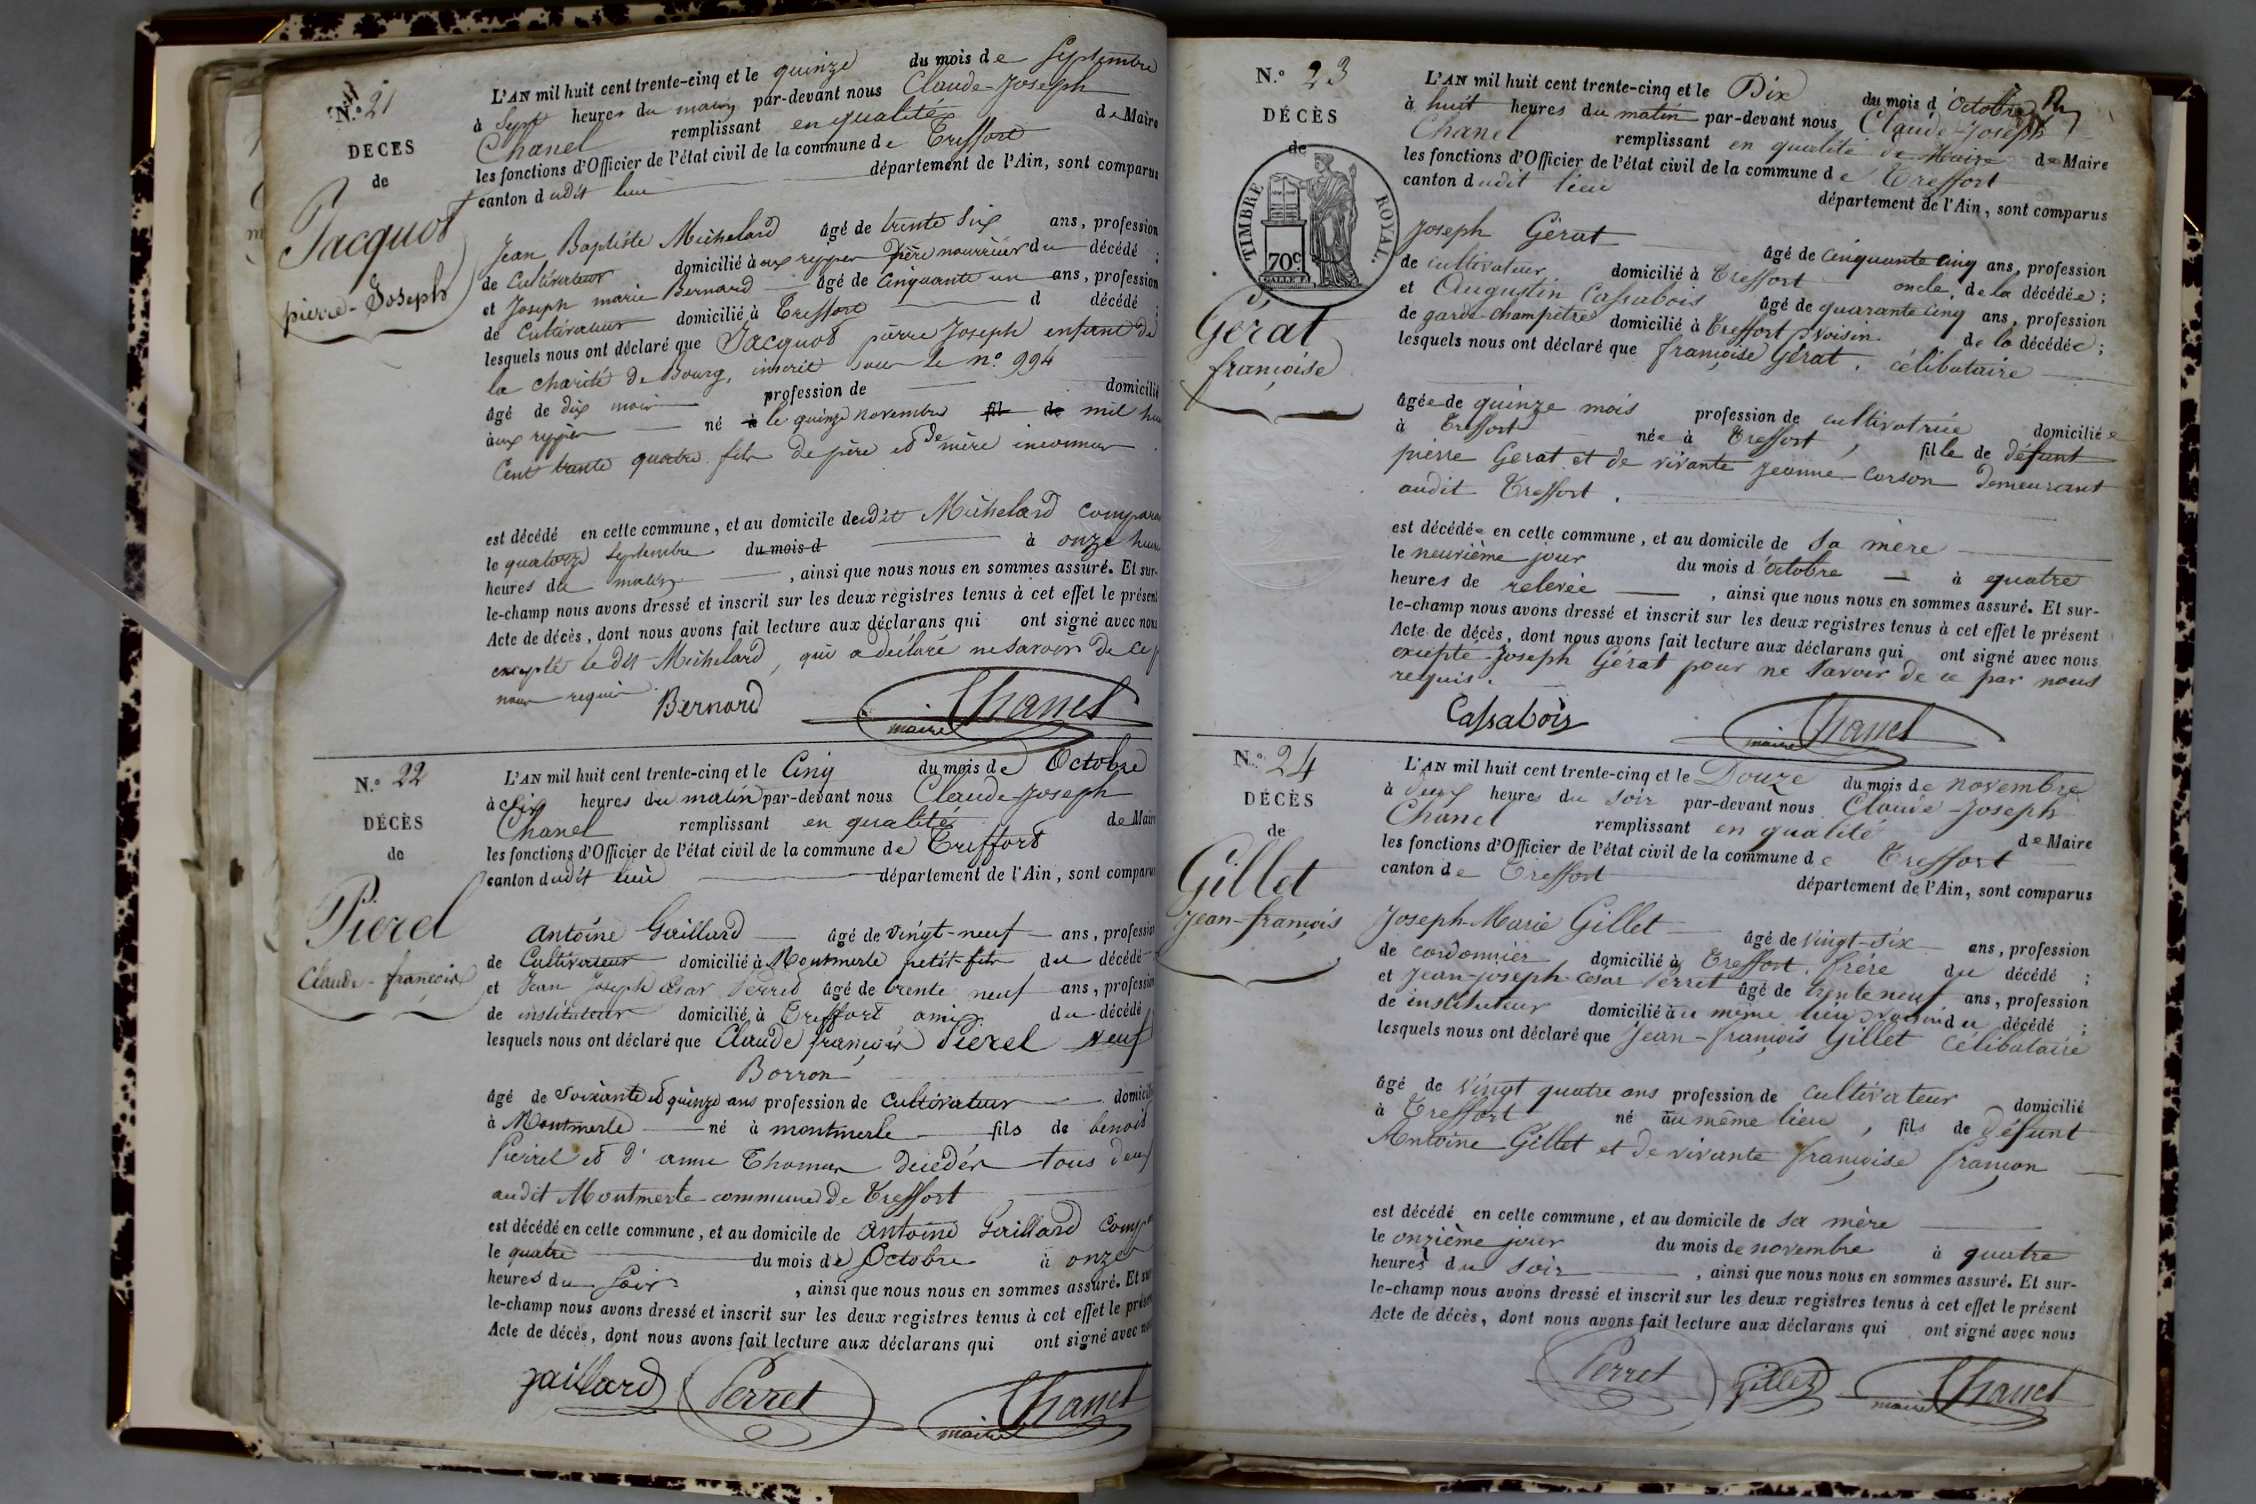 N.º 21
DÉCÈS
de
Jacquot
pierre-Joseph
L'AN mil huit cent trente-cinq et le quinze du mois de Septembre
à Sept heures du matin par-devant nous Claude-Joseph
Chanel remplissant en qualité de Maire
les fonctions d'Officier de l'état civil de la commune de Treffort
canton dudit lieu département de l'Ain, sont comparus
Jean Baptiste Michelard âgé de trente six ans, profession
de Cultivateur domicilié à aux rippes père nourricier du décédé ;
et Joseph marie Bernard âgé de Cinquante un ans, profession
de Cultivateur domicilié à Treffort d décédé ;
lesquels nous ont déclaré que Jacquot pierre Joseph enfant de
la charité de Bourg, inscrit sous le n.º 994
âgé de dix mois profession de domicilié
aux rippes né à le quinze novembre fil de mil hu
Cent trente quatre fils de père et de mère inconnus
est décédé en cette commune, et au domicile dudit Michelard compara
le quatorze Septembre du mois d à onze heures
heures du matin , ainsi que nous nous en sommes assuré. Et sur-
le-champ nous avons dressé et inscrit sur les deux registres tenus à cet effet le présent
Acte de décès, dont nous avons fait lecture aux déclarans qui ont signé avec nous
excepté le dit Michelard, qui a déclaré ne savoir de ce p
nous requis
Bernard Chanel
maire
N.º 22
DÉCÈS
de
Pierel
Claude-françois
L'AN mil huit cent trente-cinq et le Cinq du mois de Octobre
à dix heures du matin par-devant nous Claude-Joseph
Chanel remplissant en qualité de Maire
les fonctions d'Officier de l'état civil de la commune de Treffort
canton dudit lieu département de l'Ain, sont comparus
Antoine Gaillard âgé de vingt-neuf ans, profession
de Cultivateur domicilié à Montmerle petit-fils du décédé
et Jean Joseph César Perret âgé de trente neuf ans, profession
de instituteur domicilié à Treffort ami du décédé
lesquels nous ont déclaré que Claude françois Pierel veuf
Borron
âgé de Soixante et quinze ans profession de Cultivateur domicilié
à Montmerle né à montmerle fils de benoit
Pierrel et d'anne Thomas décédés tous deux
audit Montmerle commune de Treffort
est décédé en cette commune, et au domicile de Antoine Gaillard comp
le quatre du mois de Octobre à onze
heures du Soir , ainsi que nous nous en sommes assuré. Et sur
le-champ nous avons dressé et inscrit sur les deux registres tenus à cet effet le présent
Acte de décès, dont nous avons fait lecture aux déclarans qui ont signé avec nous
gaillard Perret Chanel
maire
N.º 23
DÉCÈS
de
TIMBRE ROYAL.
70c
Gérat
françoise
L'AN mil huit cent trente-cinq et le Dix du mois d'Octobre
à huit heures du matin par-devant nous Claude-Joseph
Chanel remplissant en qualité de Maire de Maire
les fonctions d'Officier de l'état civil de la commune de Treffort
canton dudit lieu département de l'Ain, sont comparus
Joseph Gérat âgé de cinquante cinq ans, profession
de cultivateur domicilié à Treffort oncle de la décédée ;
et Augustin Cassabois âgé de quarante cinq ans, profession
de garde-champêtre domicilié à Treffort voisin de la décédée ;
lesquels nous ont déclaré que françoise Gérat, célibataire
âgée de quinze mois profession de cultivatrice domiciliée
à Treffort née à Treffort, fille de défunt
pierre Gerat et de vivante Jeanne Corson demeurant
audit Treffort.
est décédée en cette commune, et au domicile de sa mère
le neuvième jour du mois d'octobre à quatre
heures de relevée , ainsi que nous nous en sommes assuré. Et sur-
le-champ nous avons dressé et inscrit sur les deux registres tenus à cet effet le présent
Acte de décès, dont nous avons fait lecture aux déclarans qui ont signé avec nous
excepté Joseph Gérat pour ne savoir de ce par nous
requis.
Cassabois Chanel
maire
N.º 24
DÉCÈS
de
Gillet
Jean-françois
L'AN mil huit cent trente-cinq et le Douze du mois de novembre
à deux heures du soir par-devant nous Claude-Joseph
Chanel remplissant en qualité de Maire
les fonctions d'Officier de l'état civil de la commune de Treffort
canton de Treffort département de l'Ain, sont comparus
Joseph-Marie Gillet âgé de vingt-six ans, profession
de cordonnier domicilié à Treffort, frère du décédé ;
et Jean-joseph-césar Perret âgé de trente neuf ans, profession
de instituteur domicilié à u même lieu voisin du décédé ;
lesquels nous ont déclaré que Jean-françois Gillet célibataire
âgé de vingt quatre ans profession de cultivateur domicilié
à Treffort né au même lieu, fils de défunt
Antoine Gillet et de vivante françoise françon
est décédé en cette commune, et au domicile de sa mère
le onzième jour du mois de novembre à quatre
heures du soir , ainsi que nous nous en sommes assuré. Et sur-
le-champ nous avons dressé et inscrit sur les deux registres tenus à cet effet le présent
Acte de décès, dont nous avons fait lecture aux déclarans qui ont signé avec nous
Perret Gillet Chanel
maire